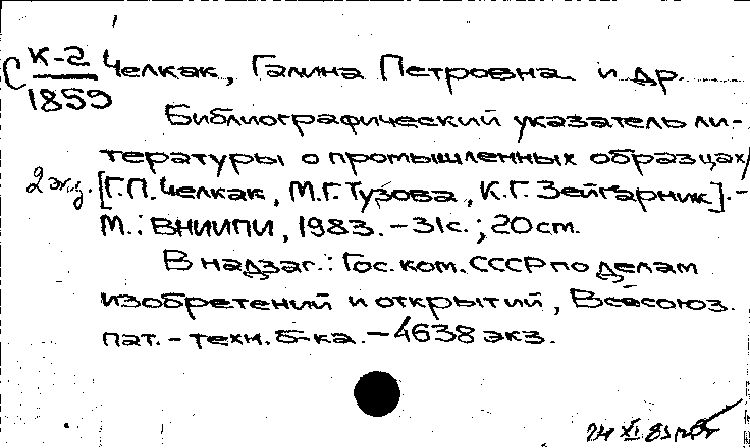 С К-2 Челкак, Галина Петровна и др.
1859
Библиографический указатель ли-
тературы о промышленных образцах/
2 экз. [Г.П. Челкак, М.Г. Тузова, К.Г. Зейгарник]. -
М.: ВНИИПИ, 1983. - 31с.; 20 cm.
В надзаг.: Гос. ком. СССР по делам
изобретений и открытий, Всесоюз.
пат. - техн. б-ка. - 4638 экз.
24 XI 83